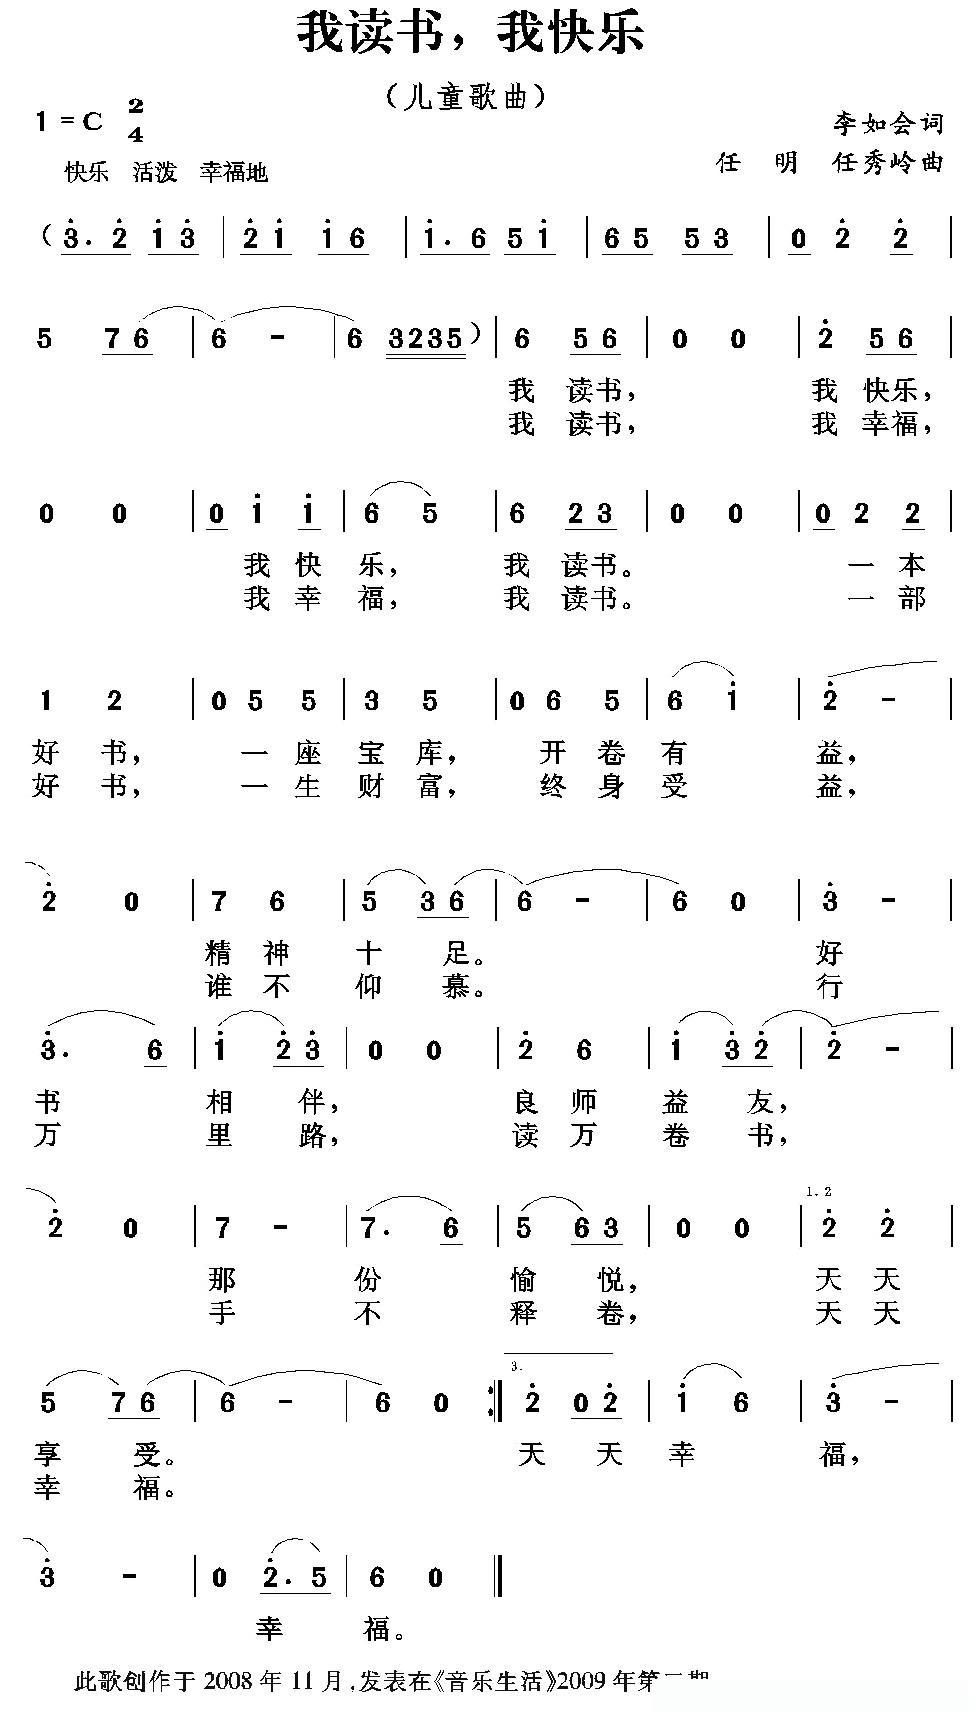 我读书，我快乐
（儿童歌曲）
1 = C 2/4
李如会词
快乐 活泼 幸福地
任 明 任秀岭曲
（3. 2 1 3 | 2 1 1 6 | 1. 6 5 1 | 6 5 5 3 | 0 2 2 |
5 7 6 | 6 - | 6 3235） | 6 5 6 | 0 0 | 2 5 6 |
我 读书， 我 快乐，
我 读书， 我 幸福，
0 0 | 0 1 1 | 6 5 | 6 2 3 | 0 0 | 0 2 2 |
我 快 乐， 我 读书。 一 本
我 幸 福， 我 读书。 一 部
1 2 | 0 5 5 | 3 5 | 0 6 5 | 6 1 | 2 - |
好 书， 一 座 宝 库， 开 卷 有 益，
好 书， 一 生 财 富， 终 身 受 益，
2 0 | 7 6 | 5 3 6 | 6 - | 6 0 | 3 - |
精 神 十 足。 好
谁 不 仰 慕。 行
3. 6 | 1 2 3 | 0 0 | 2 6 | 1 3 2 | 2 - |
书 相 伴， 良 师 益 友，
万 里 路， 读 万 卷 书，
1. 2
2 0 | 7 - | 7. 6 | 5 6 3 | 0 0 | 2 2 |
那 份 愉 悦， 天 天
手 不 释 卷， 天 天
3.
5 7 6 | 6 - | 6 0 :| 2 0 2 | 1 6 | 3 - |
享 受。 天 天 幸 福，
幸 福。
3 - | 0 2. 5 | 6 0 ||
幸 福。
此歌创作于 2008 年 11 月,发表在《音乐生活》2009 年第